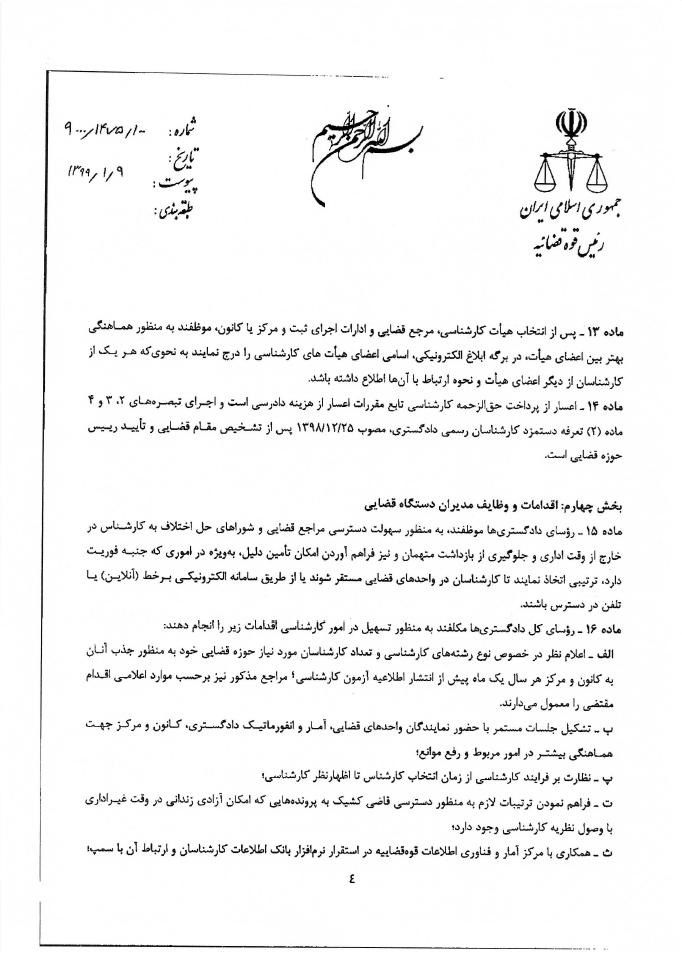 بسم الله الرحمن الرحیم
جمهوری اسلامی ایران
رئیس قوه قضائیه
شماره: ۹۰۰۰/۱۴۷۵/۱۰۰
تاریخ: ۱۳۹۹/۱/۹
پیوست:
طبقه‌بندی:
ماده ۱۳ ـ پس از انتخاب هیأت کارشناسی، مرجع قضایی و ادارات اجرای ثبت و مرکز یا کانون، موظفند به منظور هماهنگی
بهتر بین اعضای هیأت، در برگه ابلاغ الکترونیکی، اسامی اعضای هیأت های کارشناسی را درج نمایند به نحوی‌که هر یک از
کارشناسان از دیگر اعضای هیأت و نحوه ارتباط با آن‌ها اطلاع داشته باشد.
ماده ۱۴ ـ اعسار از پرداخت حق‌الزحمه کارشناسی تابع مقررات اعسار از هزینه دادرسی است و اجرای تبصره‌های ۲، ۳ و ۴
ماده (۲) تعرفه دستمزد کارشناسان رسمی دادگستری، مصوب ۱۳۹۸/۱۲/۲۵ پس از تشخیص مقام قضایی و تأیید رییس
حوزه قضایی است.
بخش چهارم: اقدامات و وظایف مدیران دستگاه قضایی
ماده ۱۵ ـ رؤسای دادگستری‌ها موظفند، به منظور سهولت دسترسی مراجع قضایی و شوراهای حل اختلاف به کارشناس در
خارج از وقت اداری و جلوگیری از بازداشت متهمان و نیز فراهم آوردن امکان تأمین دلیل، به‌ویژه در اموری که جنبه فوریت
دارد، ترتیبی اتخاذ نمایند تا کارشناسان در واحدهای قضایی مستقر شوند یا از طریق سامانه الکترونیکی برخط (آنلاین) یا
تلفن در دسترس باشند.
ماده ۱۶ ـ رؤسای کل دادگستری‌ها مکلفند به منظور تسهیل در امور کارشناسی اقدامات زیر را انجام دهند:
الف ـ اعلام نظر در خصوص نوع رشته‌های کارشناسی و تعداد کارشناسان مورد نیاز حوزه قضایی خود به منظور جذب آنان
به کانون و مرکز هر سال یک ماه پیش از انتشار اطلاعیه آزمون کارشناسی؛ مراجع مذکور نیز برحسب موارد اعلامی اقدام
مقتضی را معمول می‌دارند.
ب ـ تشکیل جلسات مستمر با حضور نمایندگان واحدهای قضایی، آمار و انفورماتیک دادگستری، کانون و مرکز جهت
هماهنگی بیشتر در امور مربوط و رفع موانع؛
پ ـ نظارت بر فرایند کارشناسی از زمان انتخاب کارشناس تا اظهارنظر کارشناسی؛
ت ـ فراهم نمودن ترتیبات لازم به منظور دسترسی قاضی کشیک به پرونده‌هایی که امکان آزادی زندانی در وقت غیراداری
با وصول نظریه کارشناسی وجود دارد؛
ث ـ همکاری با مرکز آمار و فناوری اطلاعات قوه‌قضاییه در استقرار نرم‌افزار بانک اطلاعات کارشناسان و ارتباط آن با سمپ؛
٤